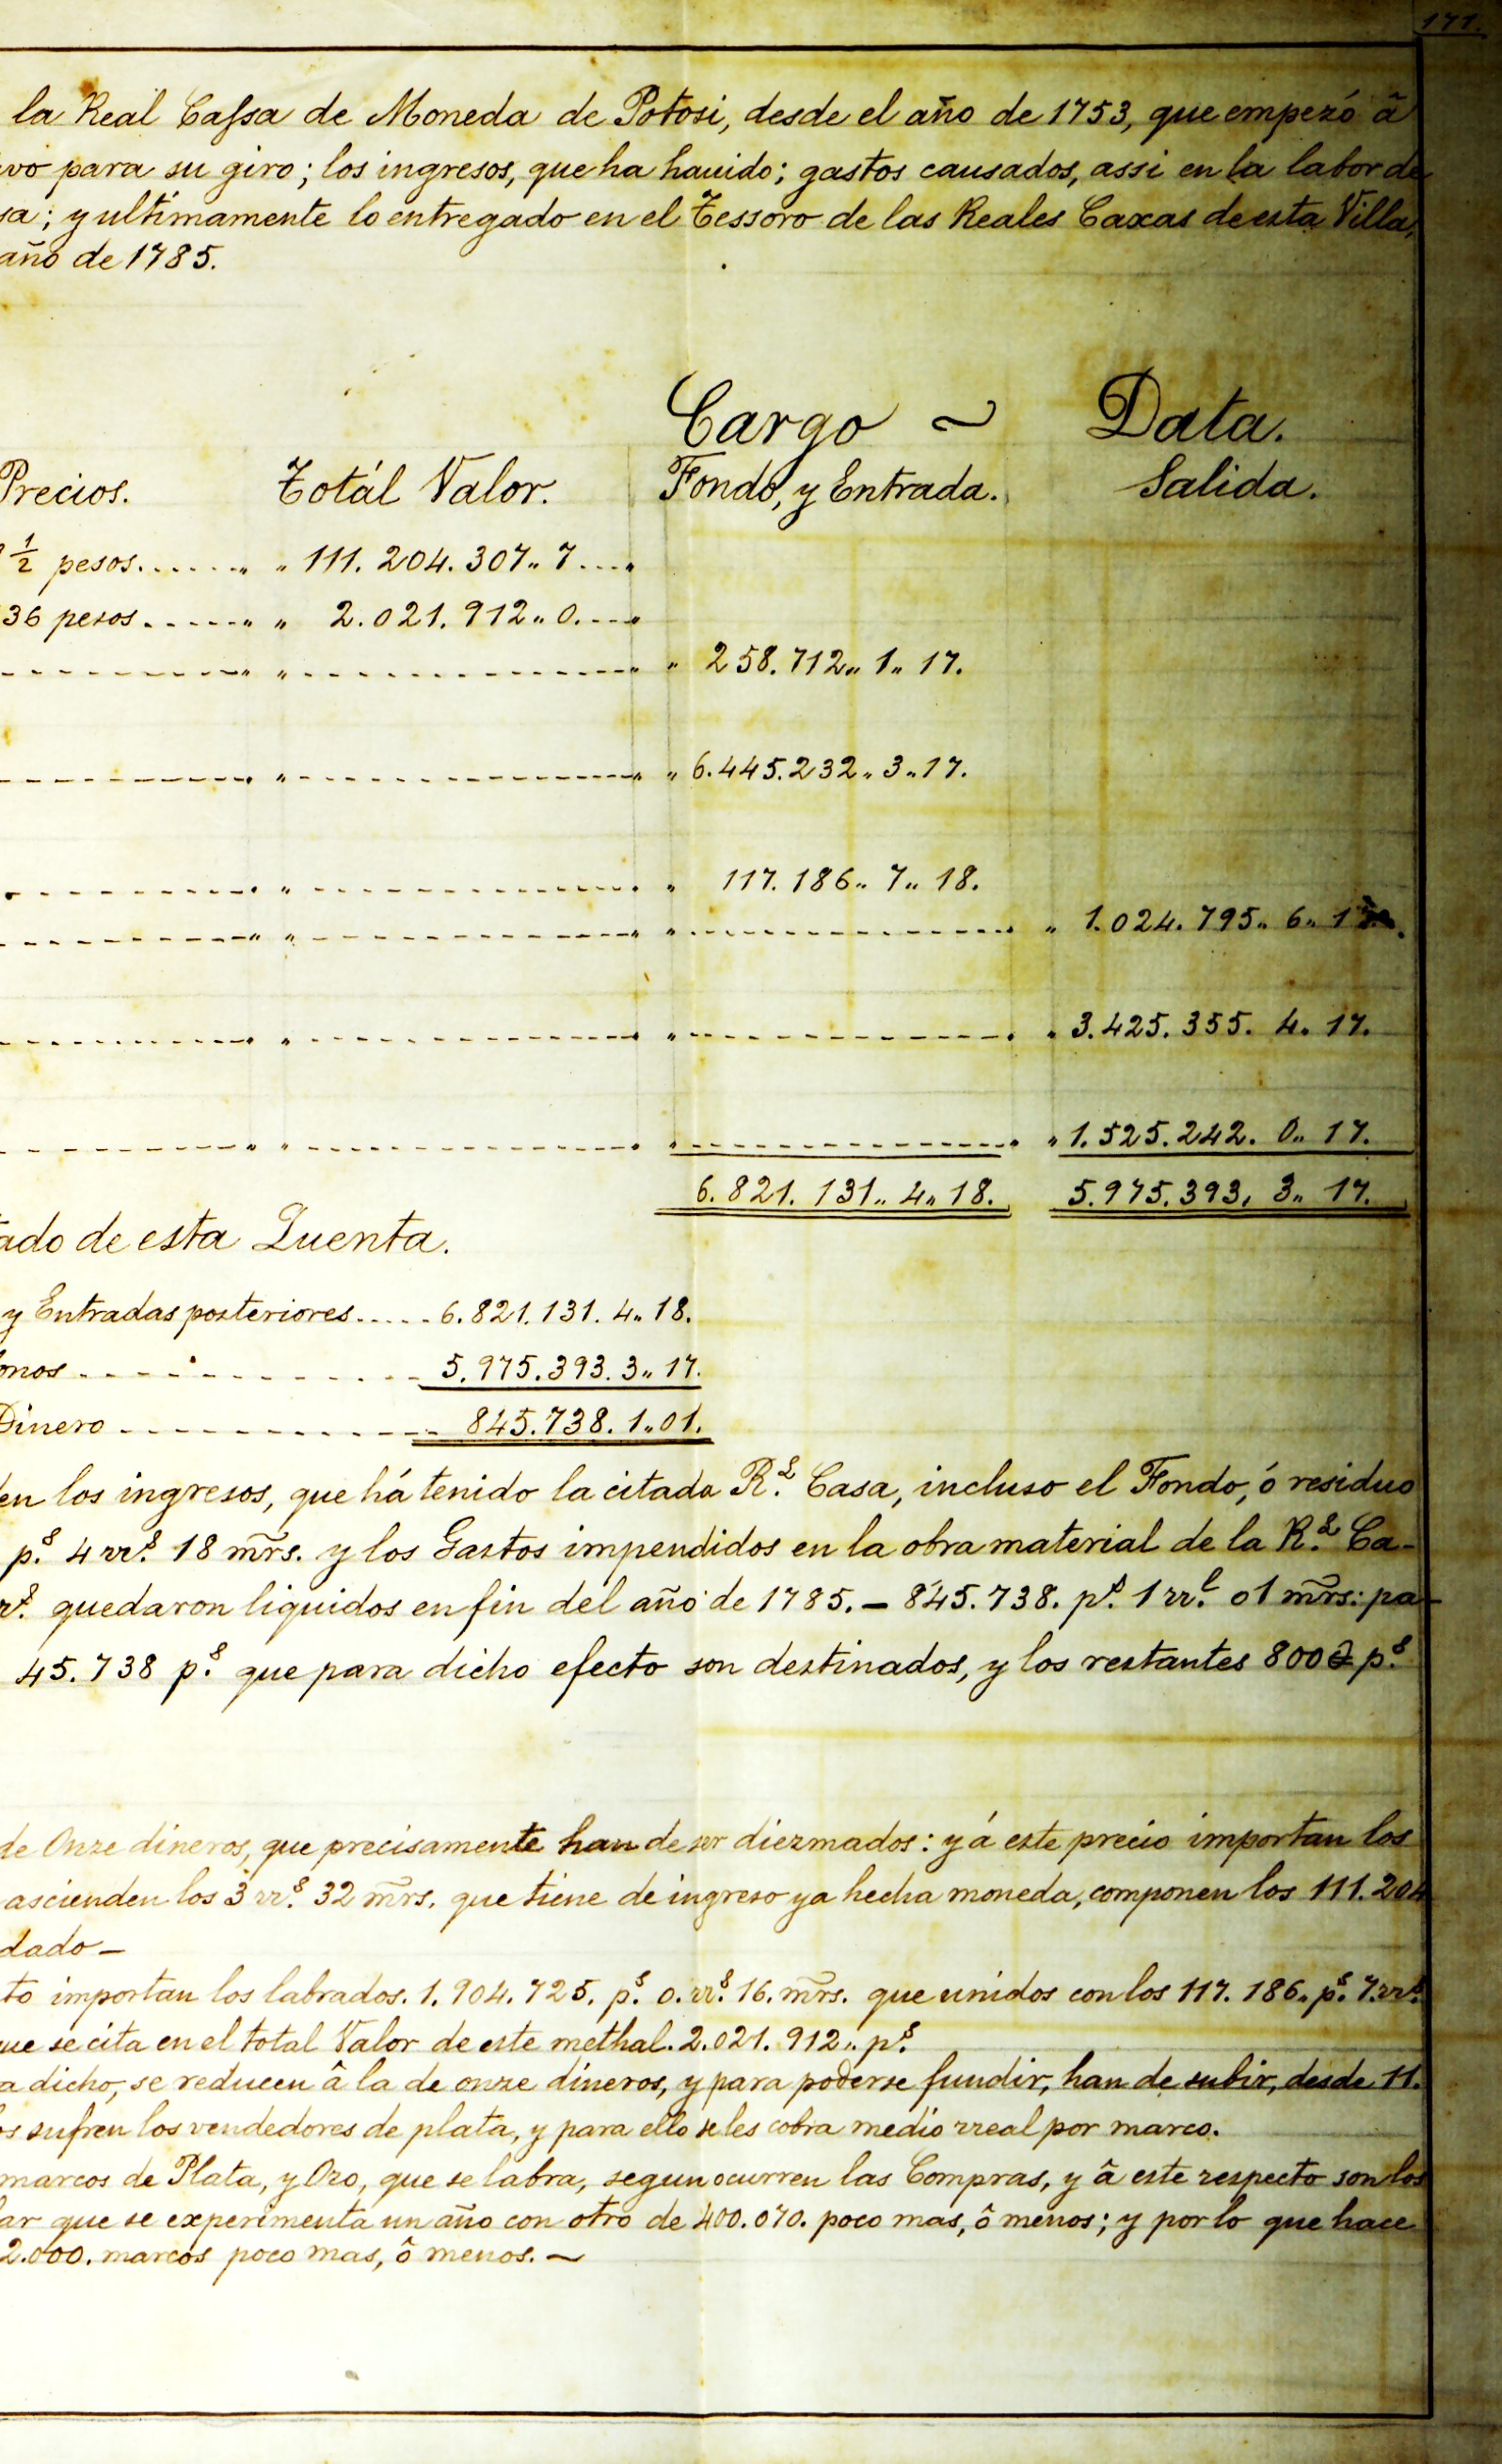 171.
la Real Cassa de Moneda de Potosi, desde el año de 1753, que empezó â
vo para su giro; los ingresos, que ha hauido; gastos causados, assi en la labor de
sa; y ultimamente lo entregado en el Tessoro de las Reales Caxas de esta Villa,
año de 1785.
Cargo ~ Data.
Precios. Totál Valor. Fondo, y Entrada. Salida.
½ pesos...... „ „ 111. 204. 307„ 7....„
36 pesos......„ „ 2. 021. 912„ 0....„
„ „ „ „ 258. 712„ 1„ 17.
„ „ „ 6. 445. 232„ 3„ 17.
„ „ 117. 186„ 7„ 18.
„ „ „ „ „ 1. 024. 795„ 6„
„ „ „ 3. 425. 355. 4. 17.
„ „ „ „ 1. 525. 242. 0„ 17.
6. 821. 131„ 4„ 18. 5. 975. 393, 3„ 17.
ado de esta Quenta.
y Entradas posteriores..... 6. 821. 131. 4„ 18.
onos - - - - - - - - - - 5. 975. 393. 3„ 17.
Dinero - - - - - - - - - - 845. 738. 1„ 01.
en los ingresos, que há tenido la citada R.l Casa, incluso el Fondo, ó residuo
p.s 4 rr.s 18 m̃rs. y los Gastos impendidos en la obra material de la R.l Ca-
r.s quedaron liquidos en fin del año de 1785. – 845. 738. p.s 1 rr.l 01 m̃rs: pa-
45. 738 p.s que para dicho efecto son destinados, y los restantes 800 p.s
de Onze dineros, que precisamente han de ser diezmados: y á este precio importan los
ascienden los 3 rr.s 32 m̃rs. que tiene de ingreso ya hecha moneda, componen los 111. 204
dado –
to importan los labrados. 1. 904. 725. p.s 0. rr.s 16. m̃rs. que unidos con los 117. 186„ p.s 7. rr.s
ue se cita en el total Valor de este methal. 2. 021. 912„ p.s
a dicho, se reducen â la de onze dineros, y para poderse fundir, han de subir, desde 11.
os sufren los vendedores de plata, y para ello se les cobra medio rreal por marco.
marcos de Plata, y Oro, que se labra, segun ocurren las Compras, y â este respecto son los
ar que se experimenta un año con otro de 400. 070. poco mas, ô menos; y por lo que hace
2.000. marcos poco mas, ô menos. ~